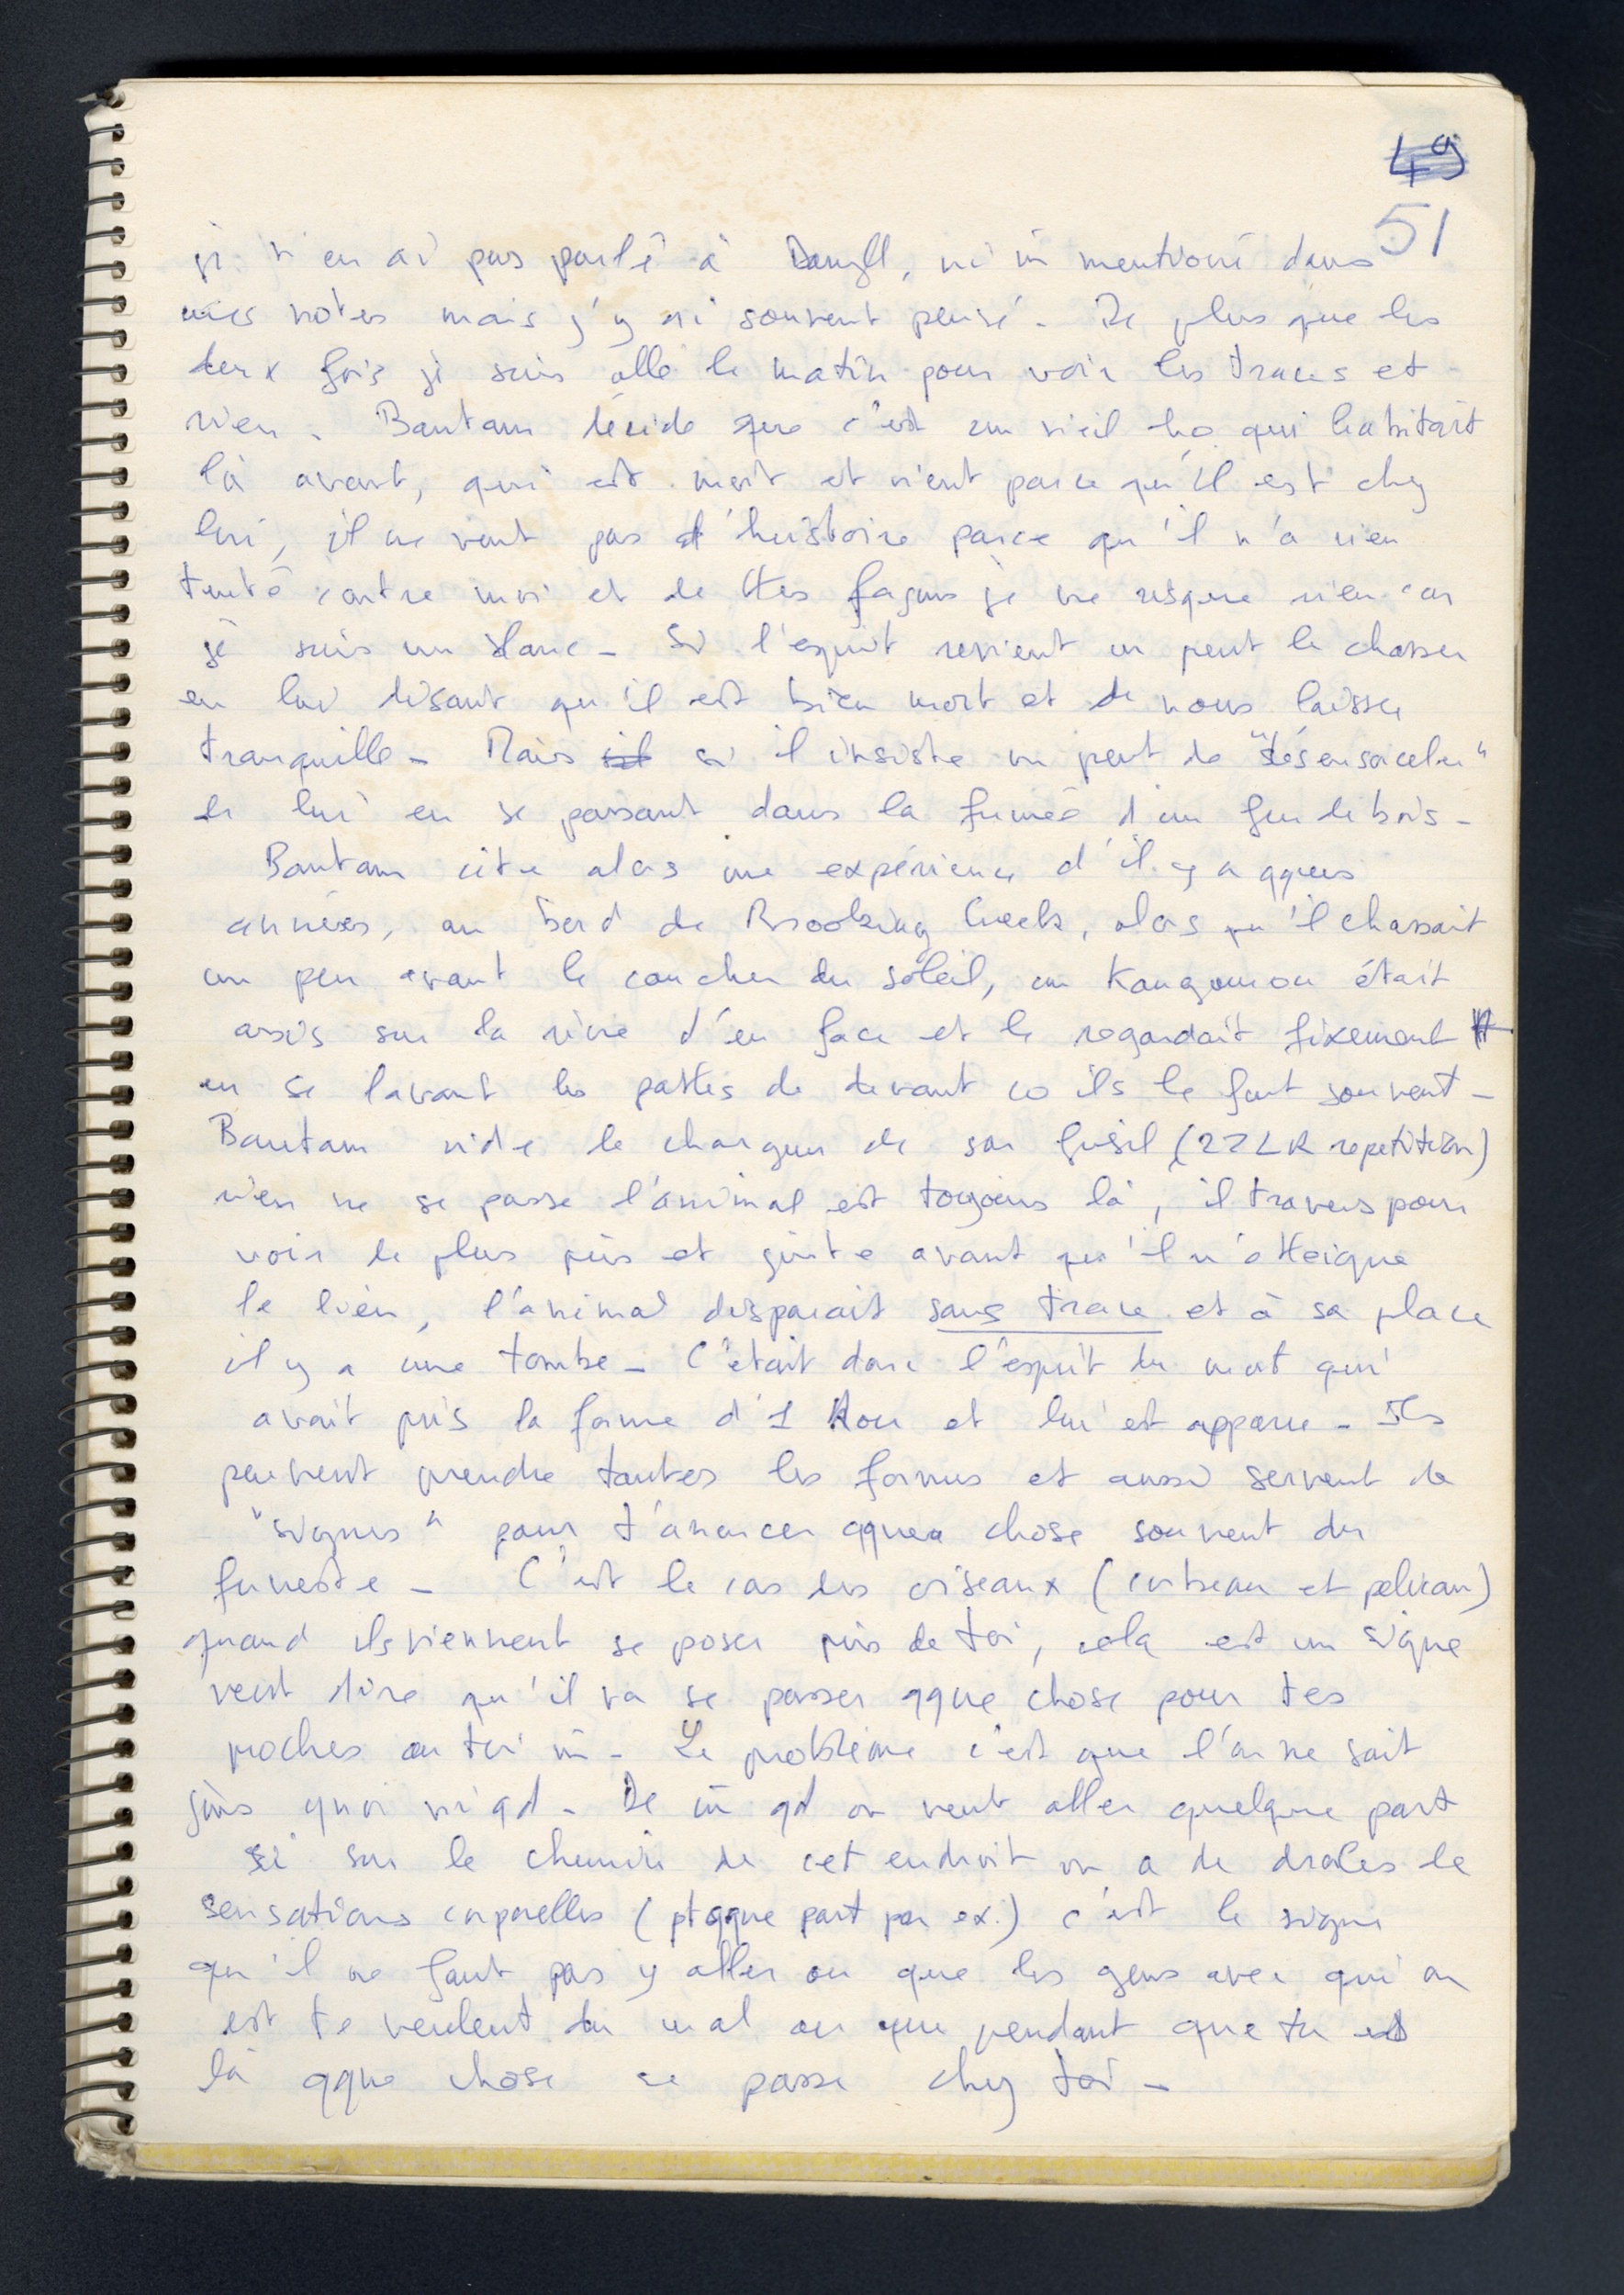 49
51
je n'en ai pas parlé à Daryll, ni m̄ mentioné dans
mes notes mais j'y ai souvent pensé - De plus que les
deux fois je suis allé le matin pour voir les traces et
rien. Bantam décide que c'est un vieil ho qui habitait
là avant, qui est mort et vient parce qu'il est chez
lui, il ne veut pas d'histoire parce qu'il n'a rien
tenté contre moi et de ttes façons je ne risque rien car
je suis un blanc - Si l'esprit revient on peut le chasser
en lui disant qu'il est bien mort et de nous laisser
tranquille - Mais il si il insiste on peut se "désensorceler"
de lui en se passant dans la fumée d'un feu de bois -
Bantam cite alors une expérience d'il y a qques
années, au bord de Brooking Creek, alors qu'il chassait
un peu avant le coucher du soleil, un Kangourou était
assis sur la rive d'en face et le regardait fixement
en se lavant les pattes de devant co ils le font souvent -
Bantam vide le chargeur de son fusil (22LR repetition)
rien ne se passe l'animal est toujours là, il travers pour
voir de plus près et juste avant qu'il n'atteigne
le lieu, l'animal disparait sans trace et à sa place
il y a une tombe - C'était donc l'esprit du mort qui
avait pris la forme d'1 Kou et lui est apparu - Ils
peuvent prendre toutes les formes et aussi servent de
"signes" pour t'anoncer qque chose souvent du
funeste - C'est le cas des oiseaux (corbeau et pelican)
quand ils viennent se poser près de toi, cela est un signe
veut dire qu'il va se passer qque chose pour tes
proches ou toi m̄ - Le problème c'est que l'on ne sait
jms quoi ni qd - De m̄ qd on veut aller quelque part
si sur le chemin de cet endroit on a de droles de
sensations corporelles (pt qque part par ex.) c'est le signe
qu'il ne faut pas y aller ou que les gens avec qui on
est te veulent du mal ou que pendant que tu es
là qque chose se passe chez toi -